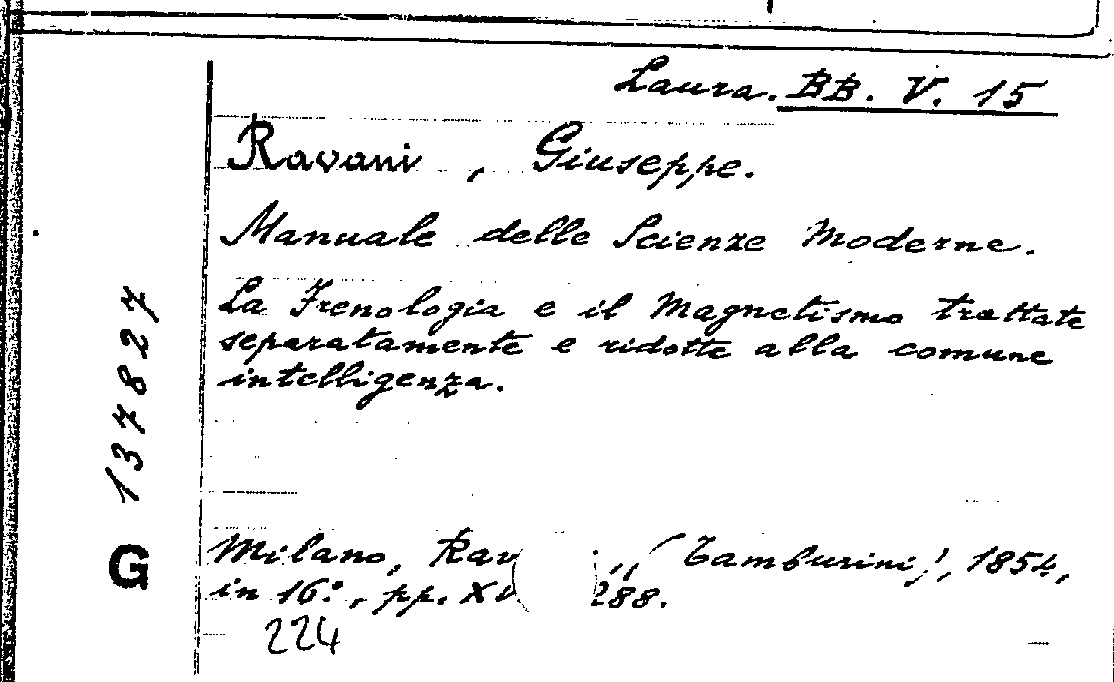 Laura. BB. V. 15
Ravani, Giuseppe.
Manuale delle Scienze Moderne.
La Frenologia e il Magnetismo trattate
separatamente e ridotte alla comune
intelligenza.
Milano, Rav (Tamburini), 1854,
in 16°, pp. XV 288.
224
G 137827